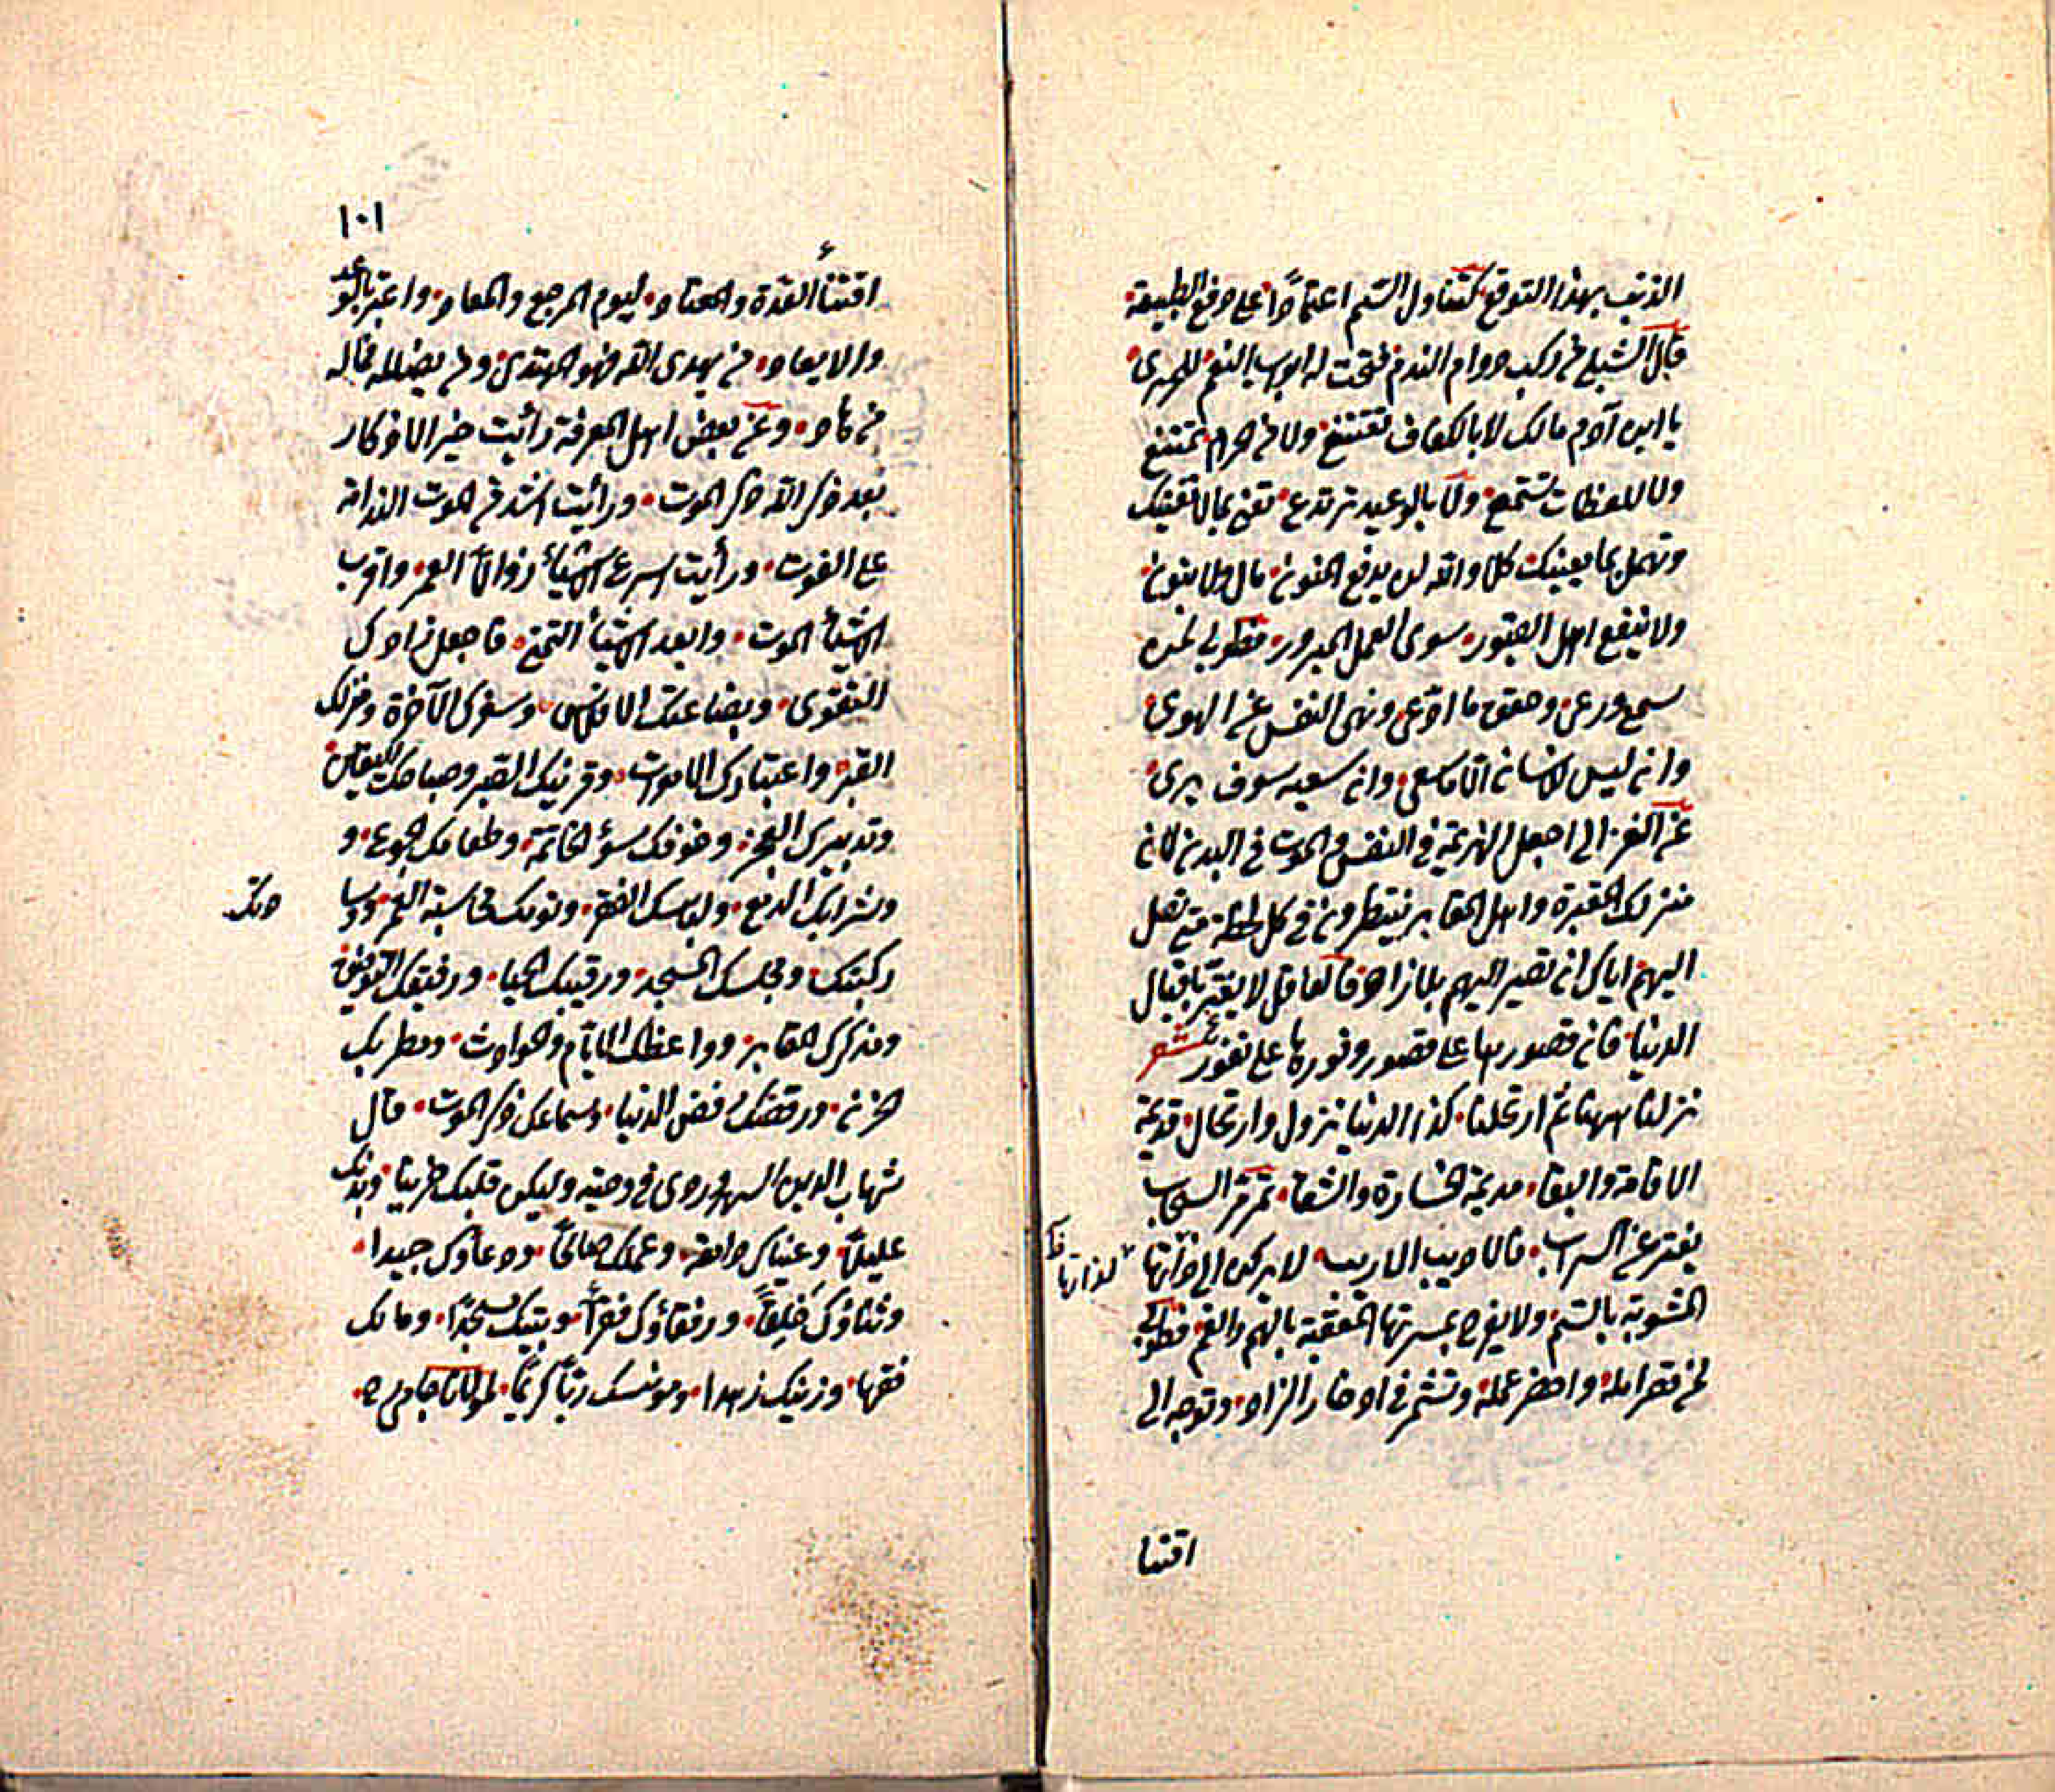 الذنب بهذا التوقع كتناول السّم اعتمادًا على دفع الطبيعة
قال الشبلي من ركب دوام الندم فتحت له ابواب النعم للحريرى
يا ابن آدم مالك لا بالكفاف تقتنع ولا من الحرام تمتنع
ولا للعظات تستمع ولا بالوعيد ترتدع تعنى بما لا يعنيك
وتهمل بما يعينك كلا والله لن يدفع المنون مال ولا بنون
ولا ينفع اهل القبور سوى العمل المبرور فطوبى لمن
سمع ورعى وحقق ما ادّعى ونهى النفس عن الهوى
وان ليس للانسان الا ما سعى وان سعيه سوف يرى
عن الغزالى اجعل الهزيمة فى النفس والموت فى البدن لان
منزلك المقبرة واهل المقابر ينتظرون فى كل لحظة متى تصل
اليهم اياك ان تصير اليهم بلا زاد فالعاقل لا يغترّ باقبال
الدنيا فان قصورها على قصور ونورها على نفور شعر
نزلنا ههنا ثم ارتحلنا كذا الدنيا نزول وارتحال قديمة
الاقامة والبقا مديمة الخسارة والشقا تمر مر السحاب
يفتر عن السراب فالاديب الاريب لا يركن الى لذّاتها
لذاتها
المشوبة بالسّم ولا يفرح بمسرتها المعقبة بالهم والغم فطوبى
لمن قصر امله واخضر عمله وتشمر فى ادخار الزاد وتوجه الى
اقتنا
١٠١
اقتناء العدة والعتاد ليوم المرجع والمعاد واعتبر بالوعد
والايعاد من يهدى الله فهو المهتدى ومن يضلله فما له
من هاد وعن بعض اهل المعرفة رأيت خير الاذكار
بعد ذكر الله ذكر الموت ورأيت اشد من الموت الندامة
على الفوت ورأيت اسرع الاشياء زوالاً العمر واقرب
الاشياء الموت وابعد الاشياء التمنى فاجعل زادك
التقوى وبضاعتك الافلاس وسفرك الآخرة ومنزلك
القبر واعتبارك الاموات وقرينك القبر وصباحك اليقين
وتدبيرك العجز وخوفك سوء الخاتمة وطعامك الجوع و
وشرابك الدمع ولباسك الفقر ونومك محاسبة العمر ووسا
دتك
ركبتك ومجلسك المسجد ورقيبك الحيا ورفيقك التوفيق
ومذكرك المقابر وواعظك الايام والحوادث ومطربك
الحزن ورقصك رفض الدنيا وسماعك ذكر الموت قال
شهاب الدين السهروردى فى وصيته وليكن قلبك حزينا وبدنك
عليلاً وعيناك دامعة وعملك صالحًا ودعاؤك جيدا
وثناؤك خليقاً ورفقاؤك فقرأ وبيتك مسجدًا ومالك
فقها وزينك زهدا ومونسك ربًّا كريمًا لمولانا